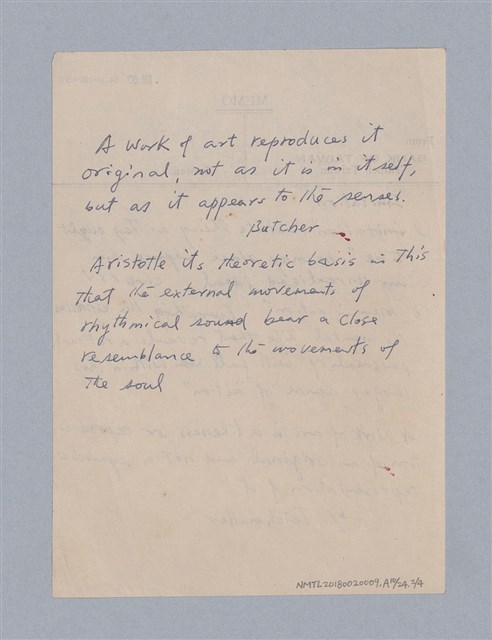 A work of art reproduces it
original, not as it is in itself,
but as it appears to the senses.
Butcher
Aristotle its theoretic basis in This
that the external movements of
rhythmical sound bear a close
resemblance to the movements of
The soul
NMTL20180020009.A